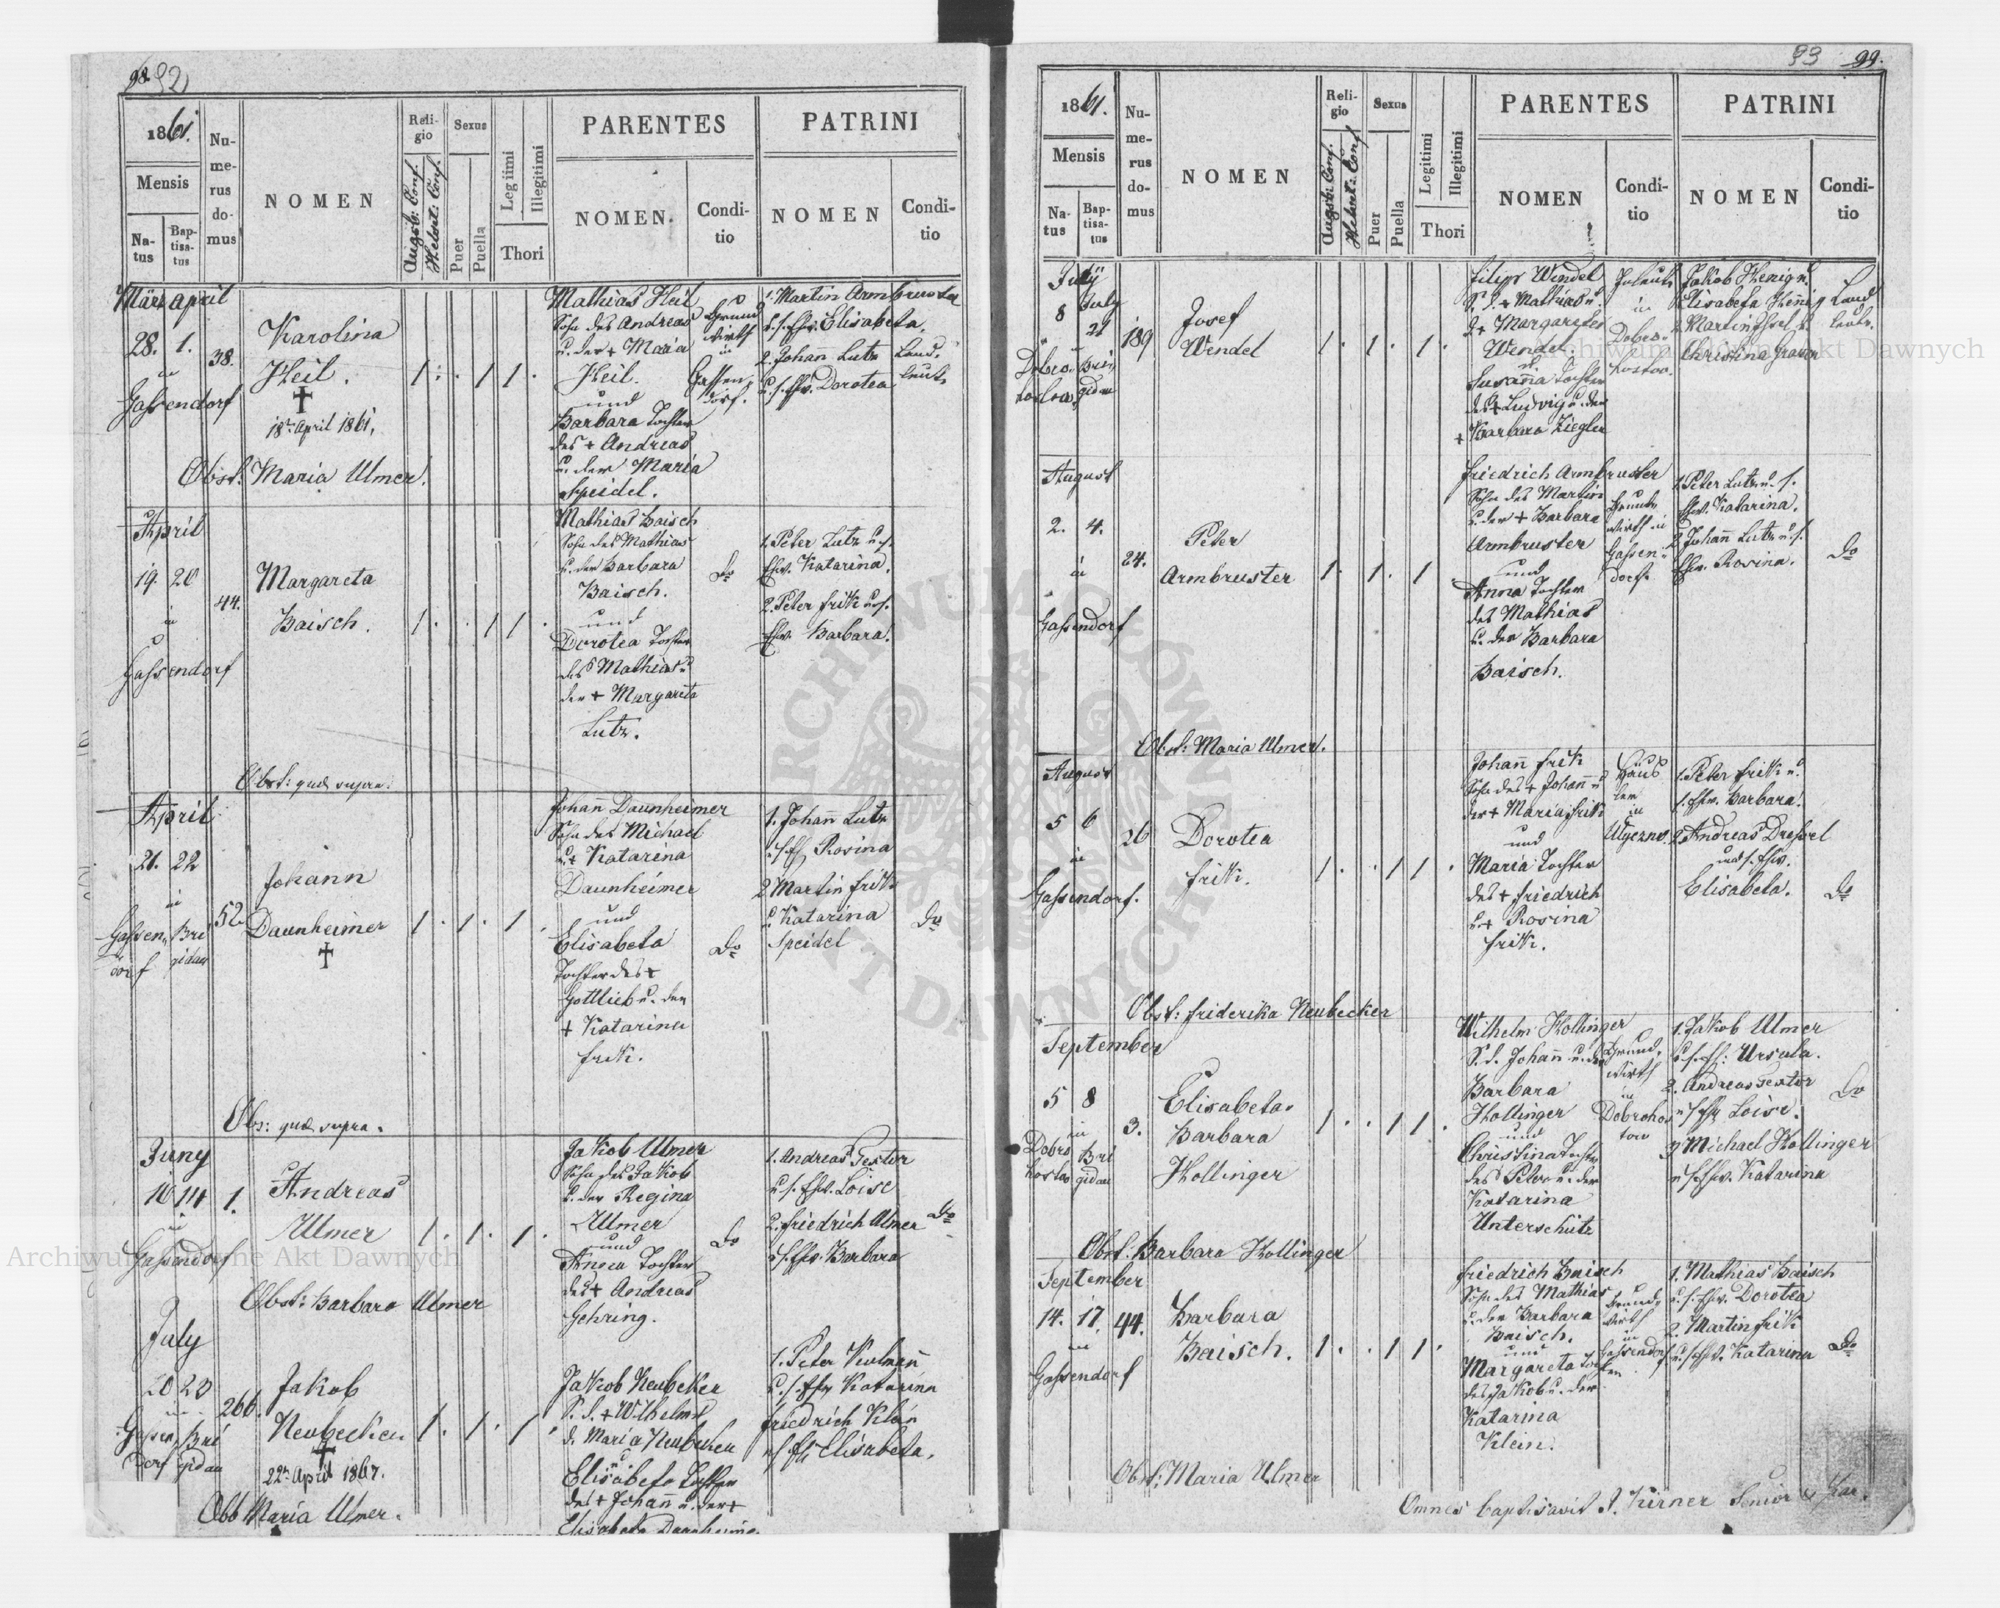 98. 92
1861.
Mensis
Natus
Baptisatus
Numerus domus
NOMEN
Religio
Augsb: Conf.
Helvet: Conf.
Sexus
Puer
Puella
Legitimi
Illegitimi
Thori
PARENTES
NOMEN.
Conditio
PATRINI
NOMEN
Conditio
März April
28. 1.
in
Gassendorf
38.
Karolina
Heil.
†
18ten April 1861.
Obst: Maria Ulmer.
1 . . 1 1 .
Mathias Heil
Sohn des Andreas
u. der † Maria
Heil.
und
Barbara Tochter
des † Andreas
u. der Maria
Speidel.
Grund
wirth
in
Gassen-
dorf.
1. Martin Armbruster
u. s. Ehw. Elisabeta.
2. Johann Lutz
u. s. Ehw. Dorotea
Land-
leute
April
19. 20
in
Gassendorf
44.
Margareta
Baisch.
1 . . 1 1 .
Mathias Baisch
Sohn des Mathias
u. der Barbara
Baisch.
und
Dorotea Tochter
des Mathias u.
der † Margareta
Lutz.
do
1. Peter Lutz u. s.
Ehw. Katarina.
2. Peter Frik u. s.
Ehw. Barbara.
Obst: quæ supra.
April
21. 22
in
Gassen- Bri
dorf gidau
52.
Johann
Daunheimer
†
1 . 1 . 1 .
Johann Daunheimer
Sohn des Michael
u. † Katarina
Daunheimer
und
Elisabeta
Tochter des †
Gottlieb u. der
† Katarina
Frik.
do
1. Johann Lutz
u. s. Eh. Rosina
2 Martin Frik
u. Katarina
Speidel
do
Obs: quæ supra.
Juny
10 14
in
Gassendorf
1.
Andreas
Ulmer
1 . 1 . 1 .
Jakob Ulmer
Sohn des Jakob
u. der Regina
Ulmer
und
Anna Tochter
des † Andreas
Gehring.
do
1. Andreas Textor
u. s. Ehw. Loise
2. Friedrich Ulmer
u. s. Ehw. Barbara
do
Obst: Barbara Ulmer
July
20 23
Gassen Bri
dorf gidau
266.
Jakob
Neubecker
†
22ten April 1867.
1 . 1 . 1 .
Jakob Neubeker
S. d. † Wilhelm u.
d. Maria Neubeker
und
Elisabeta Tochter
des † Johann u. der †
Elisabeta Daunheimer
1. Peter Kulmann
u. s. Ehw. Katarina
Friedrich Klein
u. s. Eh. Elisabeta.
Obst Maria Ulmer.
93 99.
1861.
Mensis
Natus
Baptisatus
Numerus domus
NOMEN
Religio
Augsb: Conf.
Helvet: Conf.
Sexus
Puer
Puella
Legitimi
Illegitimi
Thori
PARENTES
NOMEN
Conditio
PATRINI
NOMEN
Conditio
July
8 July
21
Dobro- Bri
hostow gidau
189
Josef
Wendel
1 . 1 . 1 .
Filipp Wendel
S. d. † Mathias u.
d. † Margareta
Wendel.
Susanna Tochter
des † Ludvig u. der
† Barbara Ziegler
in
Dobro-
hostow.
Jakob Henig u.
Elisabeta Henig
2. Martin
Christina Graner
Land
leute.
August
2. 4.
in
Gassendorf
24.
Peter
Armbruster
1 . 1 . 1
Friedrich Armbruster
Sohn des Martin
u. der † Barbara
Armbruster
und
Anna Tochter
des Mathias
u. der Barbara
Baisch.
Grund
wirth in
Gassen-
dorf.
1. Peter Lutz u. s.
Ehw. Katarina.
2 Johann Lutz u. s.
Ehw. Rosina.
do
Obst: Maria Ulmer.
August
5 6
in
Gassendorf.
26
Dorotea
Frik.
1 . . 1 1 .
Johann Frik
Sohn des † Johann u
der † Maria Frik
und
Maria Tochter
des † Friedrich
u. † Rosina
Frik.
Häus
ler
in
Ugerzno
1. Peter Frik u.
s. Ehw. Barbara.
2 Andreas Dressel
und s. Ehw.
Elisabeta.
do
Obst: Friderika Neubecker
September
5 8
in
Dobro Bri
hostow gidau
3.
Elisabeta
Barbara
Hollinger
1 . . 1 1 .
Wilhelm Hollinger
S. d. Johann u. der
Barbara
Hollinger
und
Christina Tochter
des Peter u. der
Katarina
Unterschütz
Grund-
wirth
in
Dobrohos
tow
1. Jakob Ulmer
u. s. Eh: Ursula.
2. Andreas Textor
u. s. Eh. Loise.
3 Michael Hollinger
u. s. Ehw. Katarina
do
Obst: Barbara Hollinger
September
14. 17.
in
Gassendorf
44.
Barbara
Baisch.
1 . . 1 1 .
Friedrich Baisch
Sohn des Mathias
u. der Barbara
Baisch.
und
Margareta Tochter
des Jakob u. der
Katarina
Klein.
Grund-
wirth
in
Gassendorf
1. Mathias Baisch
u. s. Ehw. Dorotea
2. Martin Frik
u. s. Ehw. Katarina
do
Obst: Maria Ulmer
Omnes baptisavit J. Kirner Senior
Archiwum Główne Akt Dawnych
Archiwum Główne Akt Dawnych
ARCHIWUM GŁÓWNE AKT DAWNYCH